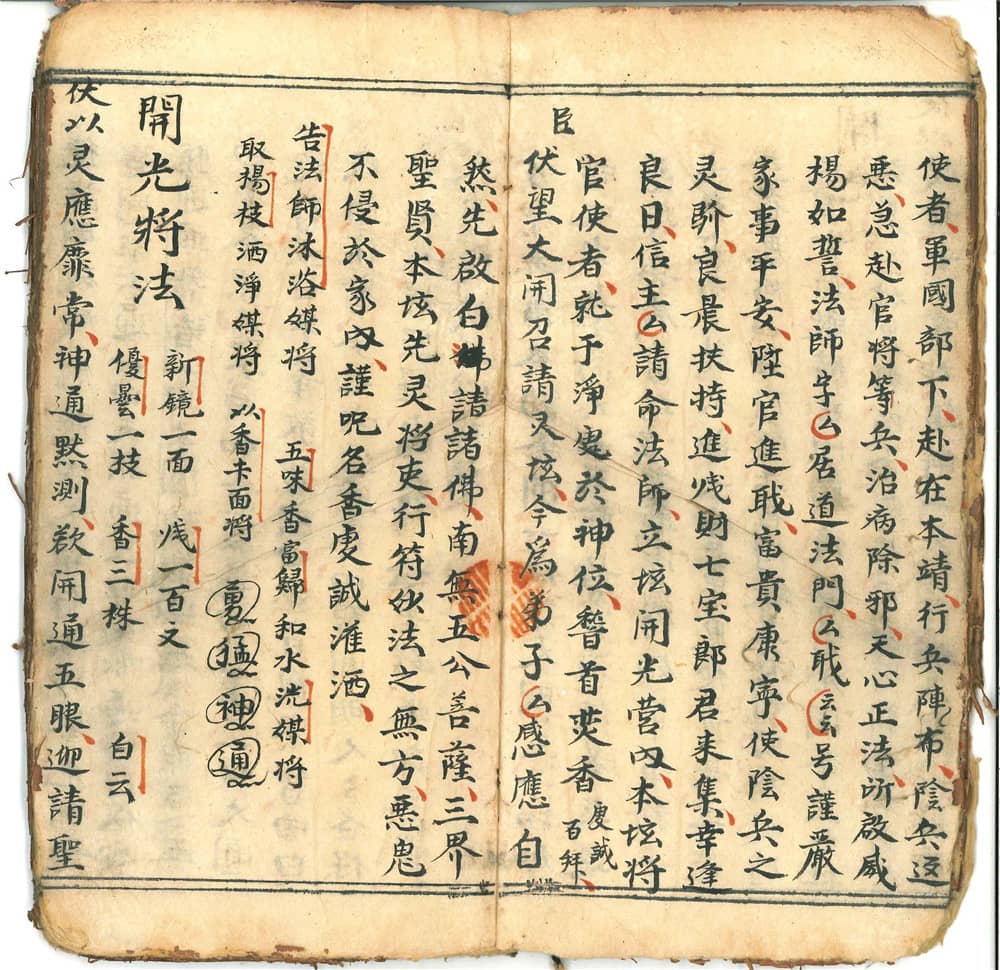 使者軍國部下赴在本靖行兵陣布陰兵
惡急赴官將等兵治病除邪天心正法所啟威
楊如誓法師字厶居道法門厶職云云号謹嚴
家事平安陞官進職富貴康寧使陰兵之
灵馸良晨扶持進戔財七宝郎君来集幸逢
良日信主厶請命法師立坛開光营內本坛将
官使者就于淨處於神位㬱首焚香虔誠百拜
臣
伏望大開召請灵坛今為弟子厶感應自
然先啟白諸諸佛南無五公善薩三界
聖賢本坛先灵将吏行符妙法之無方惡鬼
不侵於家內謹呪名香虔誠漼洒
告法師沐浴媒将 五味香富歸和水洗媒将
取楊枝洒淨媒将 以香卡面将 勇猛神通
新镜一面 戔一百文
優曇一技 香三株 白云
開光將法
伏以灵應靡常神通黙測欲開通五眼迎請聖